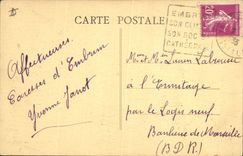 CARTE POSTALE
EMBR
SON CLI
SON ROC
CATHÉD
20c
Affectueuses
Caresses d'Embrun
Yvonne Janot
Mr et Me Lucien Labrousse
à l'Ermitage
par le Logis neuf
Banlieue de Marseille
(B D R)